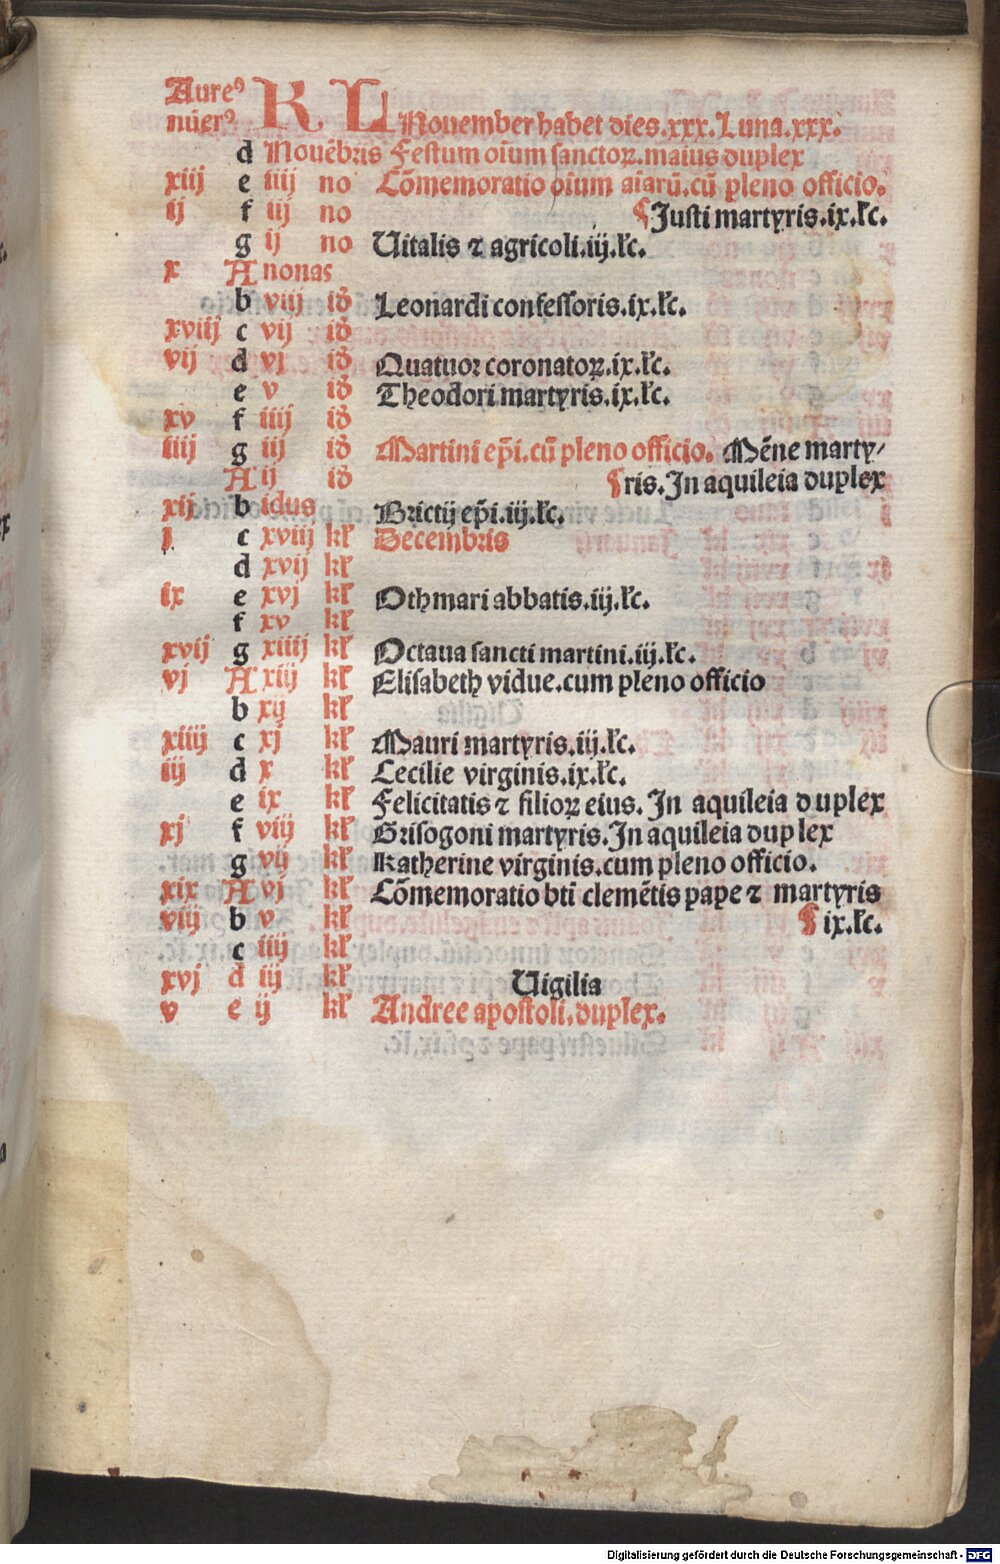 Aureꝰ KL
nūerꝰ Nouember habet dies.xxx.Luna.xxx.
d Nouēbris Festum oīum sanctoꝝ.maius duplex
xiij e iiij no Cōmemoratio oium aiarū.cū pleno officio.
ij f iij no ¶Justi martyris.ix.łc.
g ij no Uitalis ⁊ agricoli.iij.łc.
x A nonas
b viij id̄ Leonardi confessoris.ix.łc.
xviij c vij id̄
vij d vj id̄ Quatuor coronatoꝝ.ix.łc.
e v id̄ Theodori martyris.ix.łc.
xv f iiij id̄
iiij g iij id̄ Martini ep̄i.cū pleno officio. Mēne marty⸗
A ij id̄ ¶ris.In aquileia duplex
xij b idus Brictij ep̄i.iij.łc.
j c xviij kł Decembris
d xvij kł
ix e xvj kł Othmari abbatis.iij.łc.
f xv kł
xvij g xiiij kł Octaua sancti martini.iij.łc.
vj A xiij kł Elisabeth vidue.cum pleno officio
b xij kł
xiiij c xj kł Mauri martyris.iij.łc.
iij d x kł Cecilie virginis.ix.łc.
e ix kł Felicitatis ⁊ filioꝝ eius. In aquileia duplex
xj f viij kł Grisogoni martyris.In aquileia duplex
g vij kł Katherine virginis.cum pleno officio.
xix A vj kł Cōmemoratio bti clemētis pape ⁊ martyris
viij b v kł ¶ ix.łc.
c iiij kł
xvj d iij kł Uigilia
v e ij kł Andree apostoli.duplex.
Digitalisierung gefördert durch die Deutsche Forschungsgemeinschaft - DFG